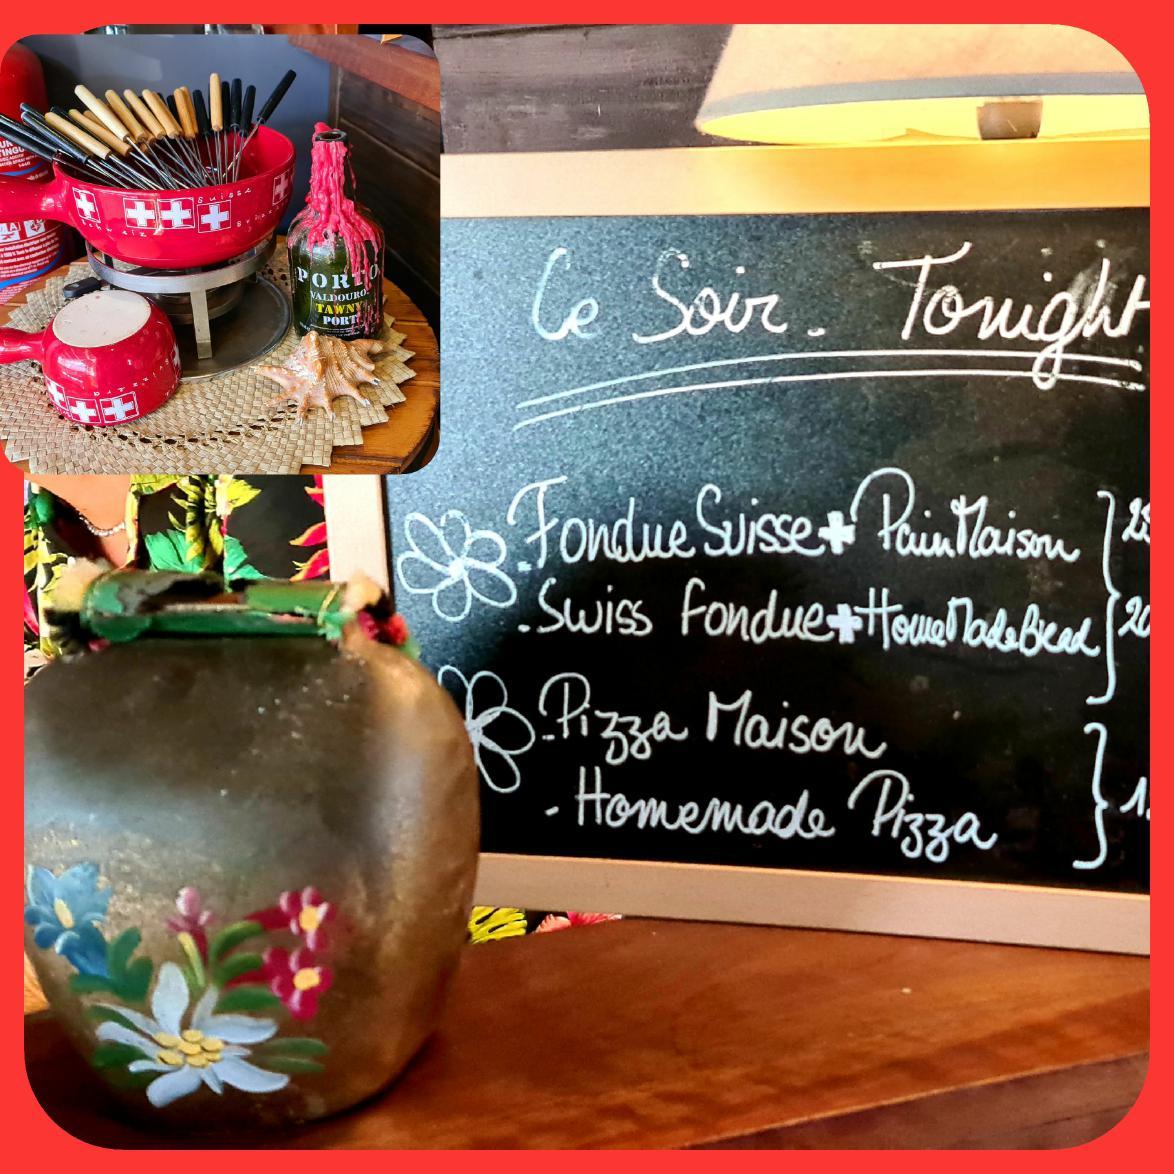 Suisse
PORTO
VALDOURO
TAWNY
PORT
Ce Soir. Tonight
- Fondue Suisse + Pain Maison
- Swiss Fondue + HomeMade Bread
- Pizza Maison
- Homemade Pizza